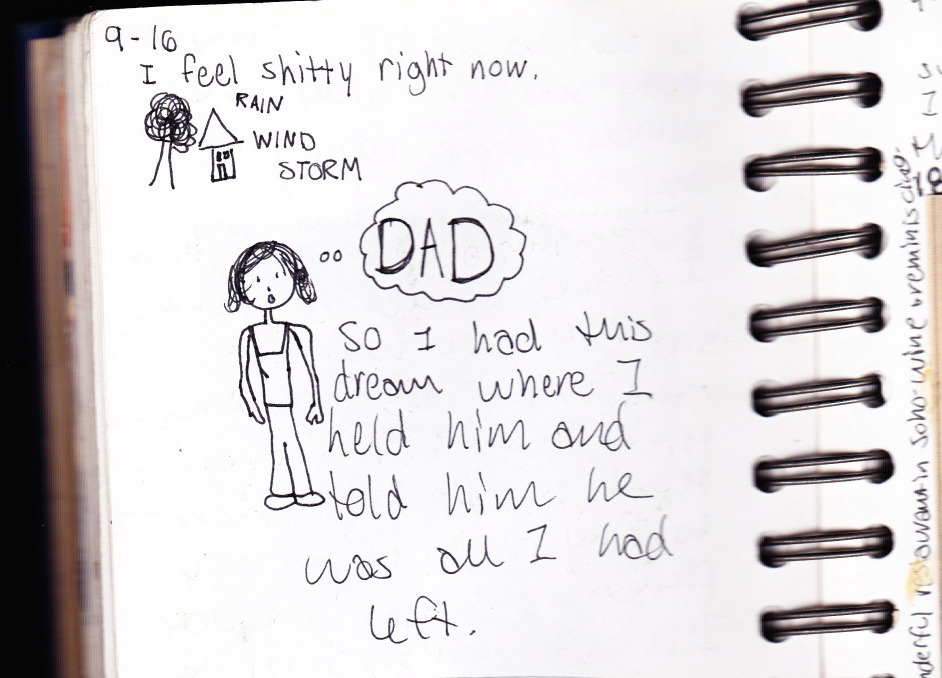 9-16
I feel shitty right now.
RAIN
WIND
STORM
DAD
So I had this
dream where I
held him and
told him he
was all I had
left.
in Soho-wine & reminiscing-